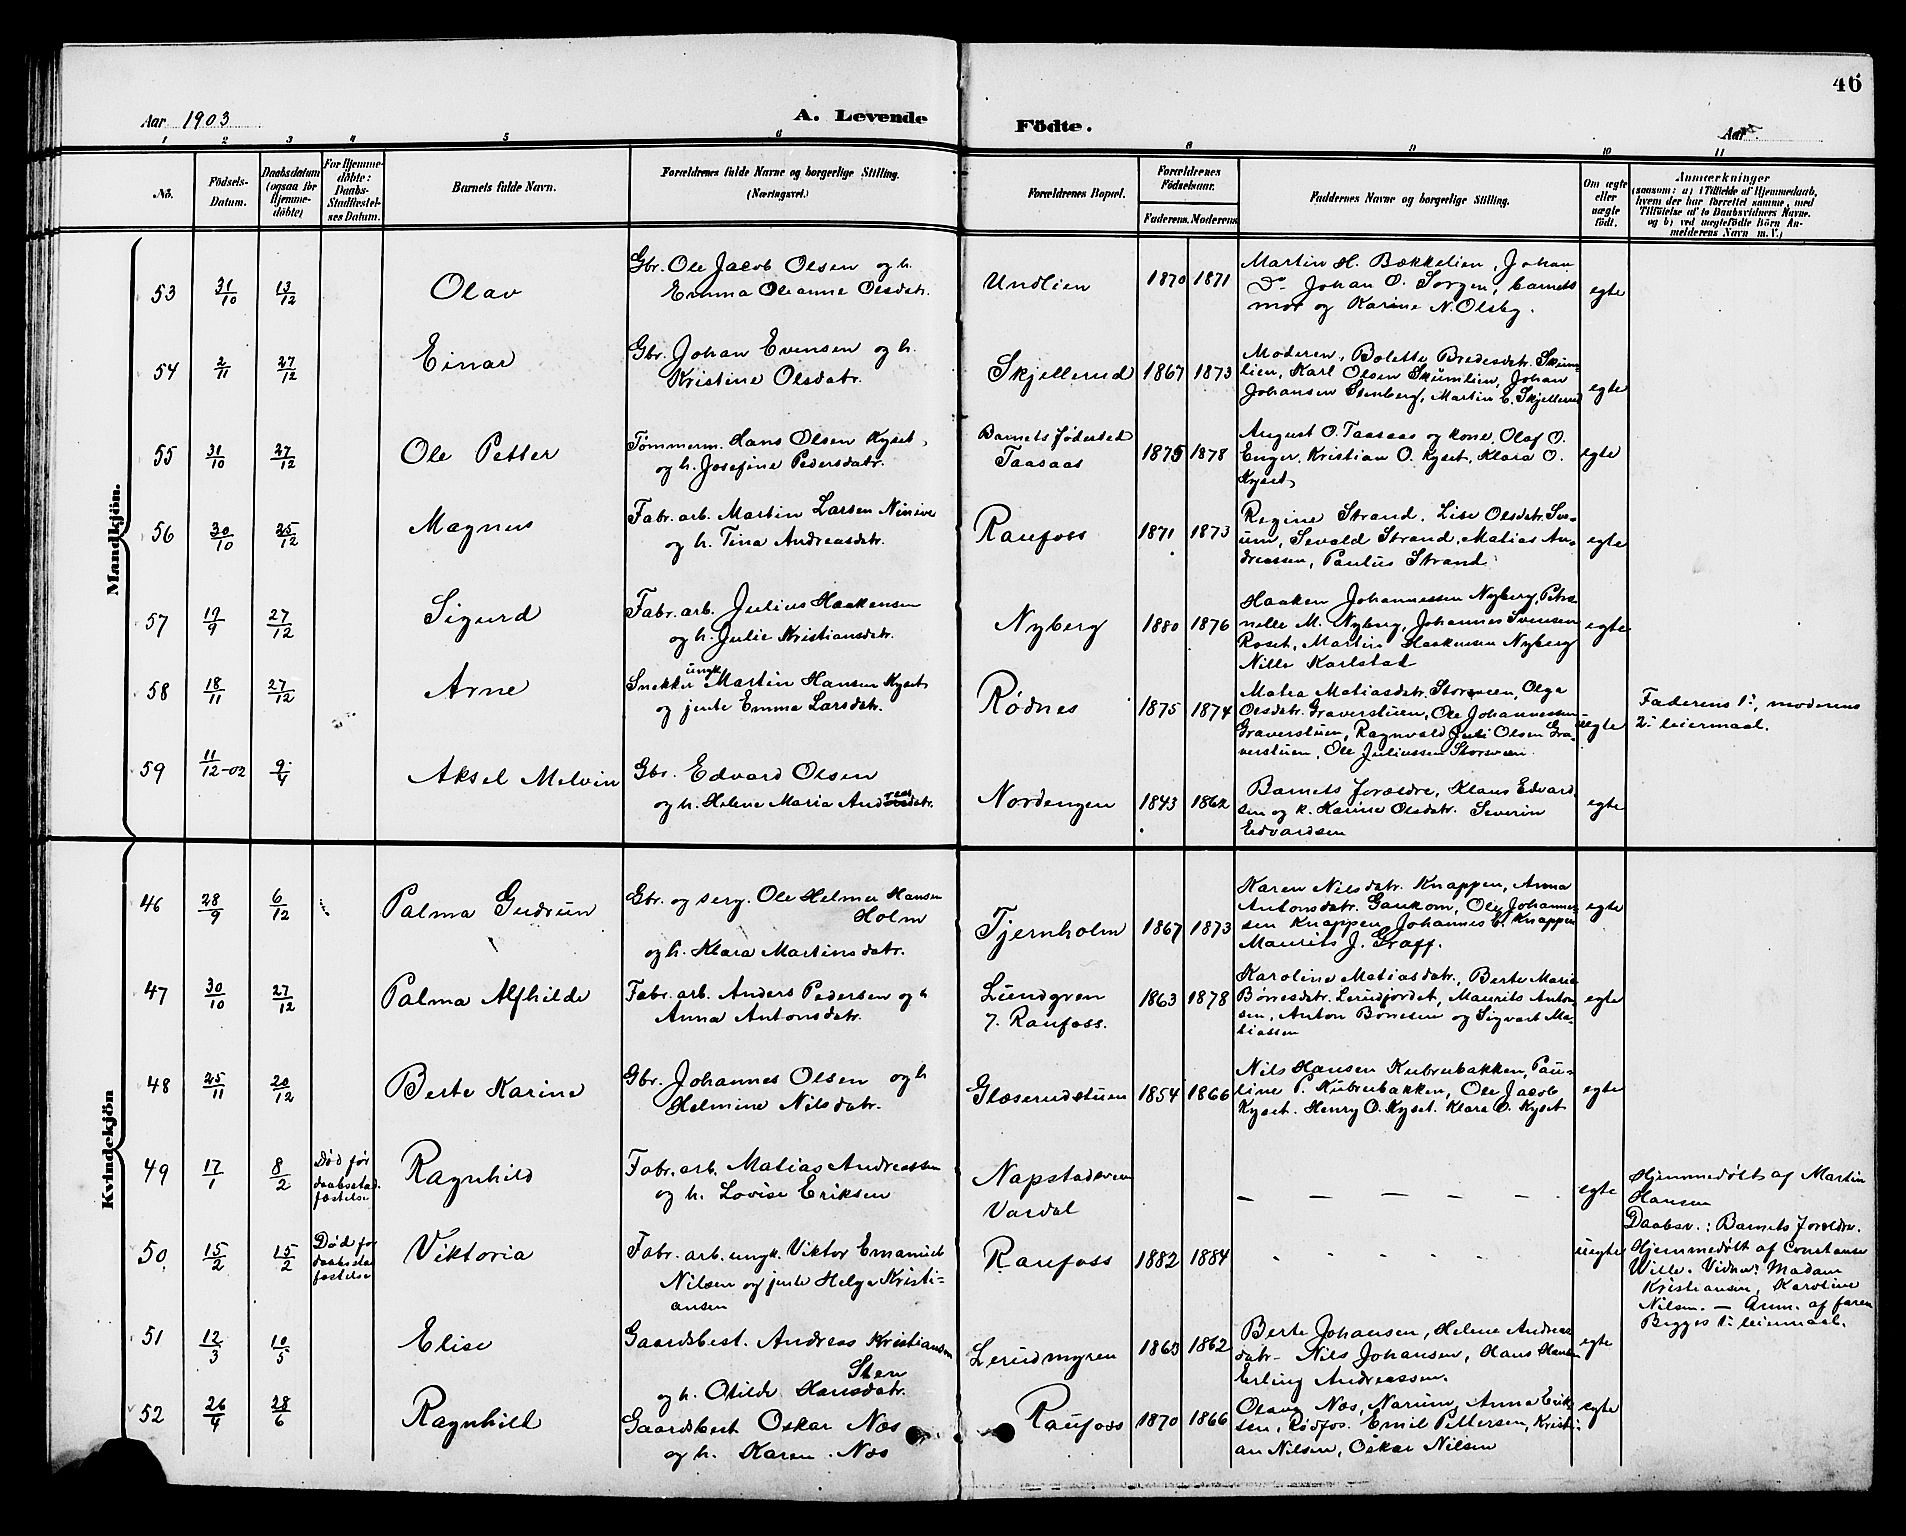 46
Aar 1903
A. Levende
Födte.
Aar
1 2 3 4 5 6 8 9 10 11
No.
Födsels-
Datum.
Daabsdatum
(ogsaa for
Hjemme-
döbte)
For Hjemme-
döbte:
Daabs-
Stadfæstel-
ses Datum.
Barnets fulde Navn.
Forældrenes fulde Navne og borgerlige Stilling.
(Næringsvei.)
Forældrenes Bopæl.
Forældrenes
Födselsaar.
Faderens. Moderens
Faddernes Navne og borgerlige Stilling.
Om ægte
eller
uægte
födt.
Anmærkninger
(saasom: a) i Tilfælde af Hjemmedaab,
hvem der har forrettet samme, med
Tilföielse af to Daabsvidners Navne.
og b) ved uægtefödte Börn An-
melderens Navn m. V.)
Mandkjön.
53 31/10 13/12 Olav
Gbr. Ole Jacob Olsen og h.
Emma Oleanne Olsdatr.
Undlien 1870 1871
Martin H. Bækkelien, Johan
Do Johan O. Sorgen, barnets
mor og Karine N. Olsby.
egte
54 2/11 27/12 Einar
Gbr. Johan Evensen og h.
Kristine Olsdatr.
Skjellerud 1867 1873
Moderen, Bolette Bredesdatr. Skum-
lien, Karl Olsen Skumlien, Johan
Johansen Stenberg, Martin E. Skjellerud
egte
55 31/10 27/12 Ole Petter
Tømmerm. Hans Olsen Kyset
og h. Josefine Pedersdatr.
Barnets fødested
Taasaas
1875 1878
August O. Taasaas og kone, Olaf O.
Enger, Kristian O. Kyset, Klara O.
Kyset
egte
56 30/10 25/12 Magnus
Fabr. arb. Martin Larsen Ninive
og h. Tina Andreasdatr.
Raufoss 1871 1873
Regine Strand, Lise Olsdatr. Sve-
um, Sevald Strand, Matias An-
dreassen, Paulus Strand
egte
57 19/9 27/12 Sigurd
Fabr. arb. Julius Haakensen
og h. Julie Kristiansdatr.
Nyberg 1880 1876
Haaken Johannessen Nyberg, Petro-
nelle M. Nyberg, Johannes Svensen
Roset, Martin Haakensen Nyberg
Nille Karlstad
egte
58 18/11 27/12 Arne
Snekker ungk. Martin Hansen Kyset
og jente Emma Larsdatr.
Rødnes 1875 1874
Matea Matiasdatr. Storsveen, Olga
Olsdatr. Graverstuen, Ole Johannessen
Graverstuen, Ragnvald Juli Olsen Gra-
verstuen, Ole Juliussen Storsveen
uegte
Faderens 1ste, moderens
2- leiermaal.
59 11/12-02 9/4 Aksel Melvin
Gbr. Edvard Olsen
og h. Helene Maria Andreasdatr.
Nordengen 1843 1862
Barnets forældre, Klaus Edvard-
sen og k. Karine Olsdatr. Severin
Edvardsen
egte
Kvindekjön
46 28/9 6/12 Palma Gudrun
Gbr. og serg. Ole Helmer Hansen
Holm
og h. Klara Martinsdatr.
Tjernholm 1867 1873
Karen Nilsdatr. Knappen, Anna
Antonsdatr. Gaukom, Ole Johannes-
sen Knappen, Johannes E. Knappen
Maurits J. Graff.
egte
47 30/10 27/12 Palma Alfhilde
Fabr. arb. Anders Pedersen og h
Anna Antonsdatr.
Lundgren
7. Raufoss.
1863 1878
Karoline Matiasdatr., Berte Maria
Bönesdatr. Lerudjordet, Maurits Anton-
sen, Anton Bönesen og Sigvart Ma-
tiassen
egte
48 25/11 20/12 Berte Karine
Gbr. Johannes Olsen og h
Helmine Nilsdatr.
Glæserudstuen 1854 1866
Nils Hansen Kubrubakken, Pau-
line P. Kubrubakken, Ole Jacob
Kyset. Henry O. Kyset. Klara O. Kyset
egte
49 17/1 8/2
Død før
daabsstad-
fæstelse
Ragnhild
Fabr. arb. Matias Andreassen
og h. Lovise Eriksen
Napstadsveen
Vardal
— — — — —
egte
Hjemmedøbt af Martin
Hansen
Daabsv.: Barnets forældre.
50 15/2 15/2
Død for
daabsstad
fæstelse
Viktoria
Fabr. arb. ungk. Viktor Emanuel
Nilsen og jente Helga Kristi-
ansen
Raufoss 1882 1884
- - - - -
uegte
Hjemmedøbt af Constanse
Wille. Vidner: Madam
Kristiansen, Karoline
Nilsen. — Anm. af faren
Begges 1ste leiermaal.
51 12/3 10/5 Elise
Gaardsbest. Andreas Kristiansen
Sten
og h. Otilde Hansdatr.
Lerudmyren 1863 1862
Berte Johansen, Helene Andreas-
datr. Nils Johansen, Hans Hansen
Erling Andreassen.
egte
52 26/4 28/6 Ragnhild
Gaardsbest Oskar Næs
og h. Karen Næs
Raufoss 1870 1866
Olava Næs, Narum, Anna Erik-
sen, Rødfos. Emil Pettersen, Kristi-
an Nilsen, Oskar Nilsen
egte